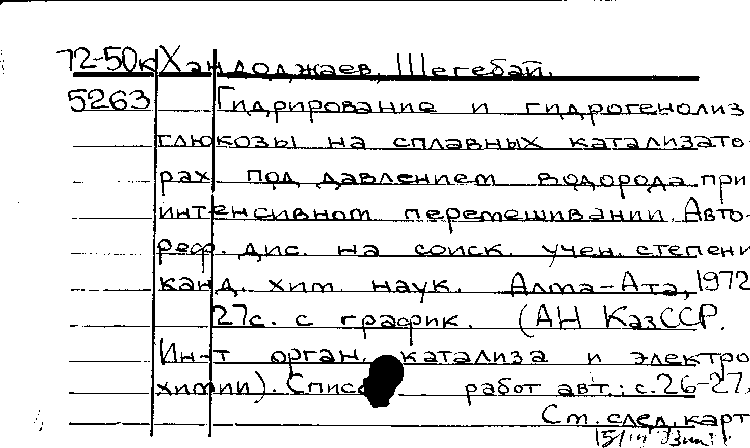 72-50к Хандоджаев, Шегебай.
5263 Гидрирование и гидрогенолиз
глюкозы на сплавных катализато-
рах под давлением водорода при
интенсивном перемешивании. Авто-
реф. дис. на соиск. учен. степени
канд. хим. наук. Алма-Ата, 1972
27с. с график. (АН КазССР.
Ин-т орган. катализа и электро
химии). Списо работ авт.: с. 26-27.
См. след. карт